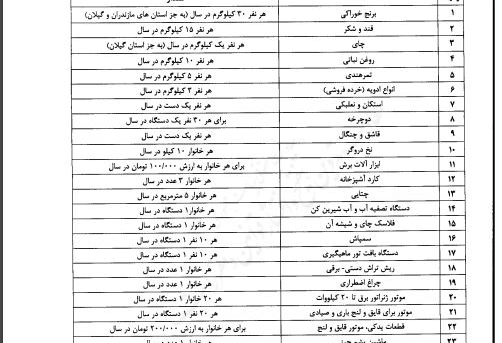 ۱ برنج خوراکی هر نفر ۳۰ کیلوگرم در سال (به جز استان های مازندران و گیلان)
۲ قند و شکر هر نفر ۱۵ کیلوگرم در سال
۳ چای هر نفر یک کیلوگرم در سال (به جز استان گیلان)
۴ روغن نباتی هر نفر ۱۰ کیلوگرم در سال
۵ تمرهندی هر نفر ۵ کیلوگرم در سال
۶ انواع ادویه (خرده فروشی) هر نفر ۲ کیلوگرم در سال
۷ استکان و نعلبکی هر نفر یک دست در سال
۸ دوچرخه برای هر ۳۰ نفر یک دستگاه در سال
۹ قاشق و چنگال هر نفر یک دست در سال
۱۰ نخ دروگر هر خانوار ۱۰ کیلو در سال
۱۱ ابزار آلات برش برای هر خانوار به ارزش ۱۰۰/۰۰۰ تومان در سال
۱۲ کارد آشپزخانه هر خانوار ۳ عدد در سال
۱۳ چتایی هر خانوار ۵ مترمربع در سال
۱۴ دستگاه تصفیه آب و آب شیرین کن هر خانوار۱ دستگاه در سال
۱۵ فلاسک چای و شیشه آن هر خانوار ۱ دستگاه در سال
۱۶ سمپاش هر ۱۰ نفر ۱ دستگاه در سال
۱۷ دستگاه بافت تور ماهیگیری هر ۱۰ نفر ۱ دستگاه در سال
۱۸ ریش تراش دستی- برقی هر خانوار ۱ عدد در سال
۱۹ چراغ اضطراری هر خانوار ۱ عدد در سال
۲۰ موتور ژنراتور برق تا ۲۰ کیلووات هر ۲۰ خانوار ۱ دستگاه در سال
۲۱ موتور برای قایق و لنج باری و صیادی هر ۲۳ نفر ۱ دستگاه در سال
۲۲ قطعات یدکی، موتور قایق و لنج برای هر خانوار به ارزش ۲۰۰/۰۰۰ تومان در سال
۲۳ ماشین هر خانوار ۱ عدد در سال